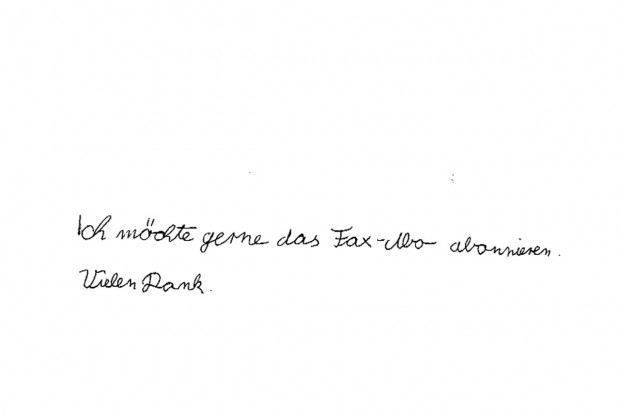 Ich möchte gerne das Fax-Abo abonnieren.
Vielen Dank.